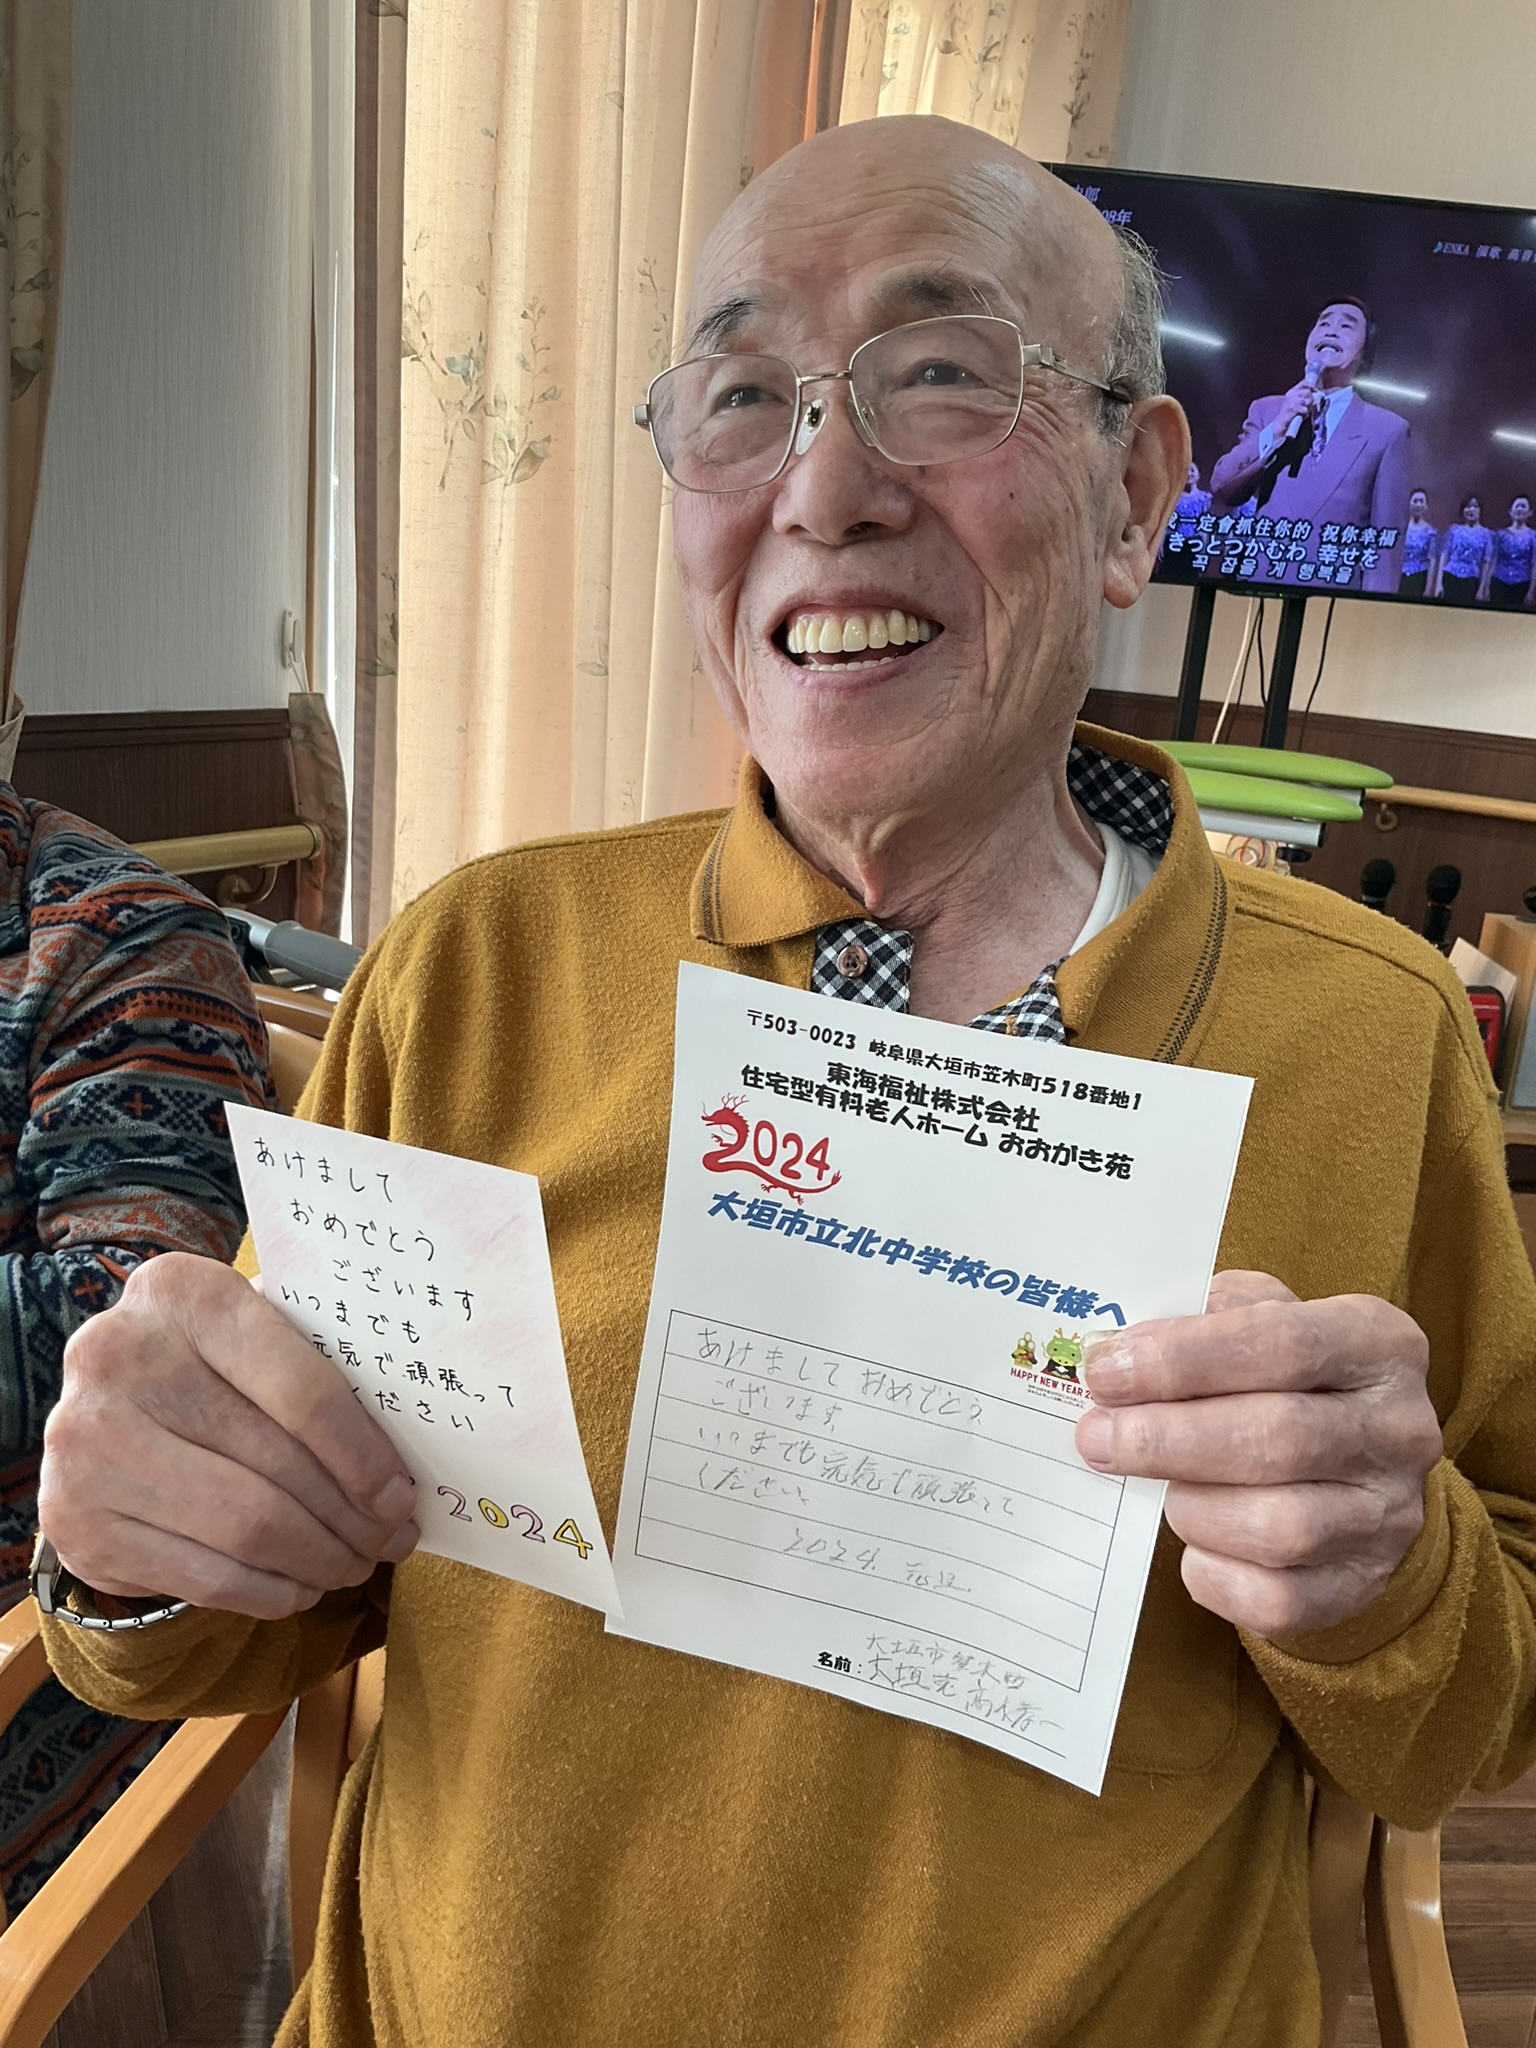 08年
♪ENKA 演歌 高音
一定會抓住你的 祝你幸福
きっとつかむわ 幸せを
꼭 잡을 게 행복을
〒503-0023 岐阜県大垣市笠木町518番地1
東海福祉株式会社
住宅型有料老人ホーム おおがき苑
2024
大垣市立北中学校の皆様へ
HAPPY NEW YEAR 2
あけまして おめでとう
ございます
いつまでも元気で頑張って
ください
2024. 元旦
大垣市笠木町
名前:大垣苑 高木孝一
あけまして
おめでとう
ございます
いつまでも
元気で頑張って
ください
2024